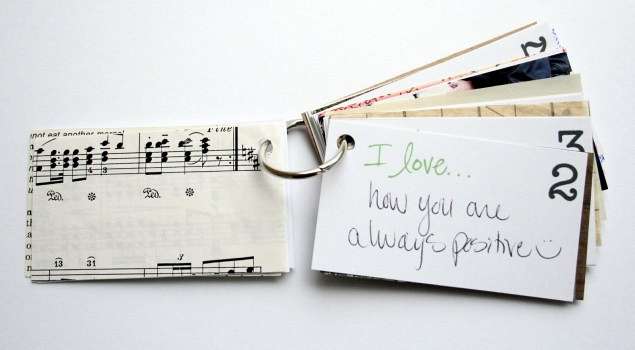 not eat another morsel
Fine
4 3
Ped. Ped.
13 31
3
7
3
2
I love...
how you are
always positive